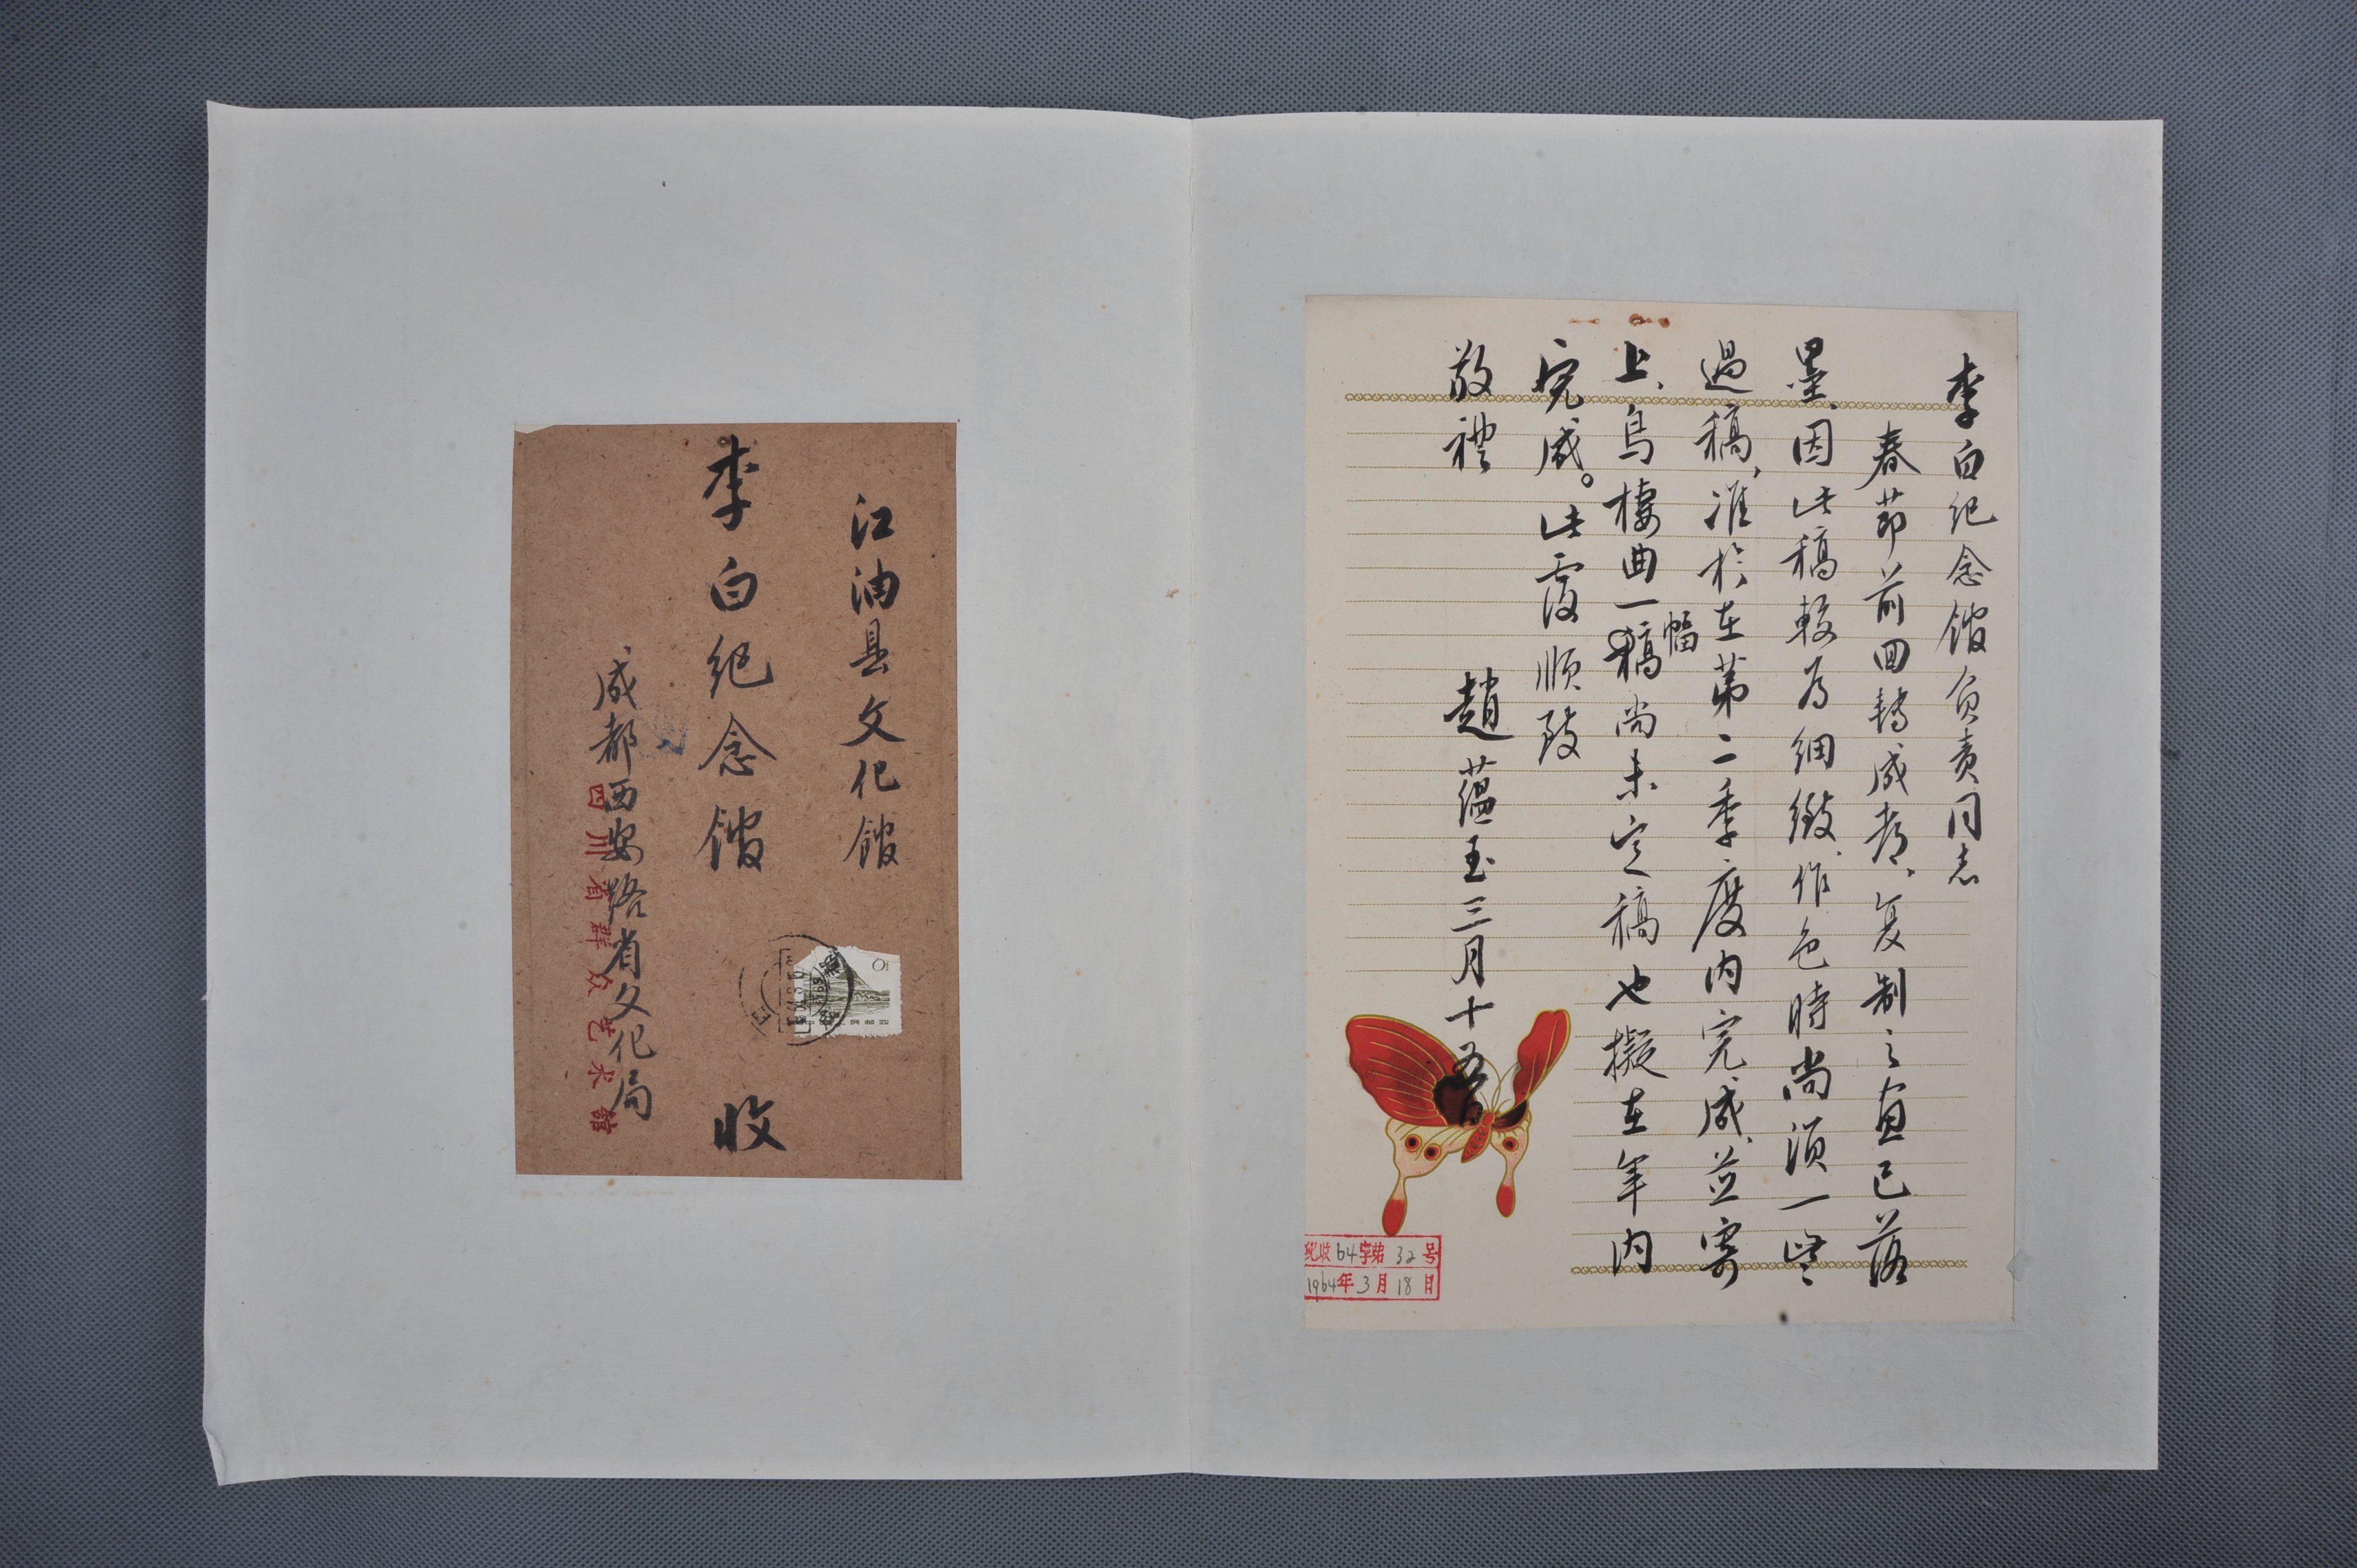 李白纪念馆负责同志
春节前回轉成都、复制之画已落
墨、因此稿較为细緻、作色時尚須一些
過稿，准於在第二季度内完成、並寄
上、烏棲曲一幅稿尚未定稿也擬在年内
完成。此覆順致
敬禮
趙蕴玉三月十五日
纪收64字第32号
1964年3月18日
江油县文化馆
李白纪念馆 收
成都西安路省文化局
四川省群众艺术馆